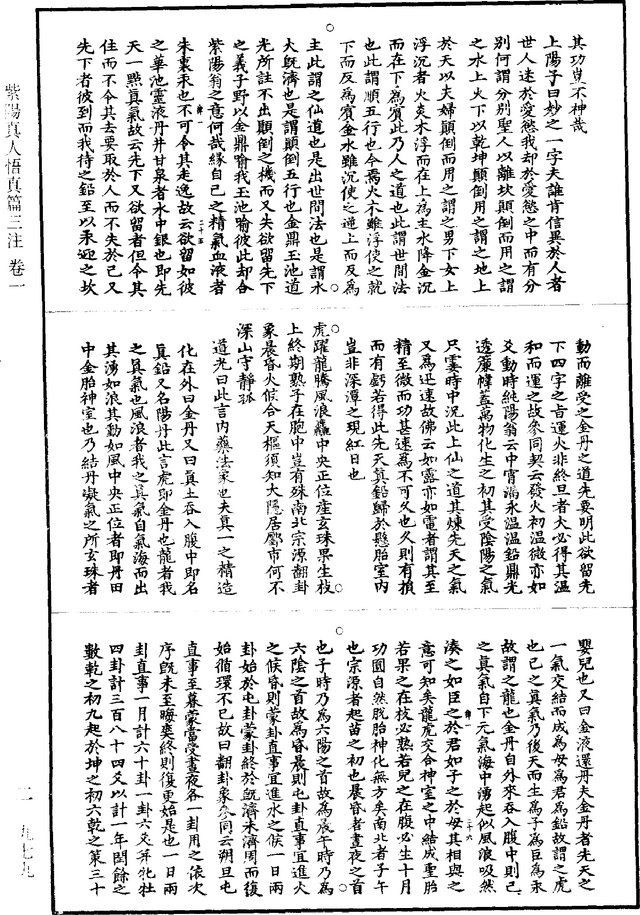 其功豈不神哉
上陽子曰妙之一字夫誰肯信異於人者
世人迷於愛慾我却於愛慾之中而有分
別何謂分別聖人以離坎顛倒而用之謂
之水上火下以乾坤顛倒用之謂之地上
於天以夫婦顛倒而用之謂之男下女上
浮沉者火炎木浮而在上為主水降金沉
而在下為賓此乃人之道也此謂世間法
也此謂順五行也今焉火木雖浮使之就
下而反為賓金水雖沉使之逆上而反為
主此謂之仙道也是出世間法也是謂水
火旣濟也是謂顛倒五行也金鼎玉池道
光所註不出顛倒之機而又失欲留先下
之義子野以金鼎喻我玉池喻彼此却合
紫陽翁之意何哉緣自己之精氣血液者
朱裏汞也不可令其走逸故云欲留如彼
之華池靈液丹井甘泉者水中銀也即先
天一點眞氣故云先下又欲留者但令其
住而不令其去要取於人而不失於己又
先下者彼到而我待之鉛至以汞迎之坎
動而離受之金丹之道先要明此欲留先
下四字之旨運火非終旦者大必得其溫
和而運之故參同契云發火初溫微亦如
爻動時純陽翁云中宵漏永溫溫鉛鼎光
透簾幃蓋萬物化生之初其受陰陽之氣
只霎時中況此上仙之道其煉先天之氣
又為迅速故佛云如露亦如電者謂其至
精至微而功甚速為不可久也久則有損
而有虧若得此先天眞鉛歸於懸胎室内
豈非深潭之現紅日也
虎躍龍騰風浪麤中央正位產玄珠果生枝
上終期熟子在胞中豈有殊南北宗源翻卦
象晨昏火候合天樞須知大隱居鄽市何必
深山守靜孤
道光曰此言内藥法象也夫眞一之精造
化在外曰金丹又曰眞土吞入腹中即名
眞鉛又名陽丹此言虎即金丹也龍者我
之眞氣也風浪者我之眞氣自氣海而出
其湧如浪其動如風中央正位者即丹田
中金胎神室也乃結丹凝氣之所玄珠者
嬰兒也又曰金液還丹夫金丹者先天之
一氣交結而成為母為君為鉛故謂之虎
也己之眞氣乃後天而生為子為臣為汞
故謂之龍也金丹自外來吞入腹中則己
之眞氣自下元氣海中湧起似風浪吸然
湊之如臣之於君如子之於母其相與之
意可知矣龍虎交合神室之中結成聖胎
若果之在枝必熟若兒之在腹必生十月
功圓自然脫胎神化無方矣南北者子午
也宗源者起苗之初也晨昏者晝夜之首
也子時乃為六陽之首故為晨午時乃為
六陰之首故為昏晨則屯卦直事宜進火
之候昏則蒙卦直事宜進水之候一日兩
卦始於屯卦蒙卦終於旣濟未濟周而復
始循環不已故曰翻卦象參同云朔旦屯
直事至暮蒙當受晝夜各一卦用之依次
序旣未至晦爽終則復更始是也一日兩
卦直事一月計六十卦一卦六爻并牝牡
四卦計三百八十四爻以計一年閏餘之
數乾之初九起於坤之初六乾之策三十
紫陽真人悟真篇三注 卷一
二 九七九